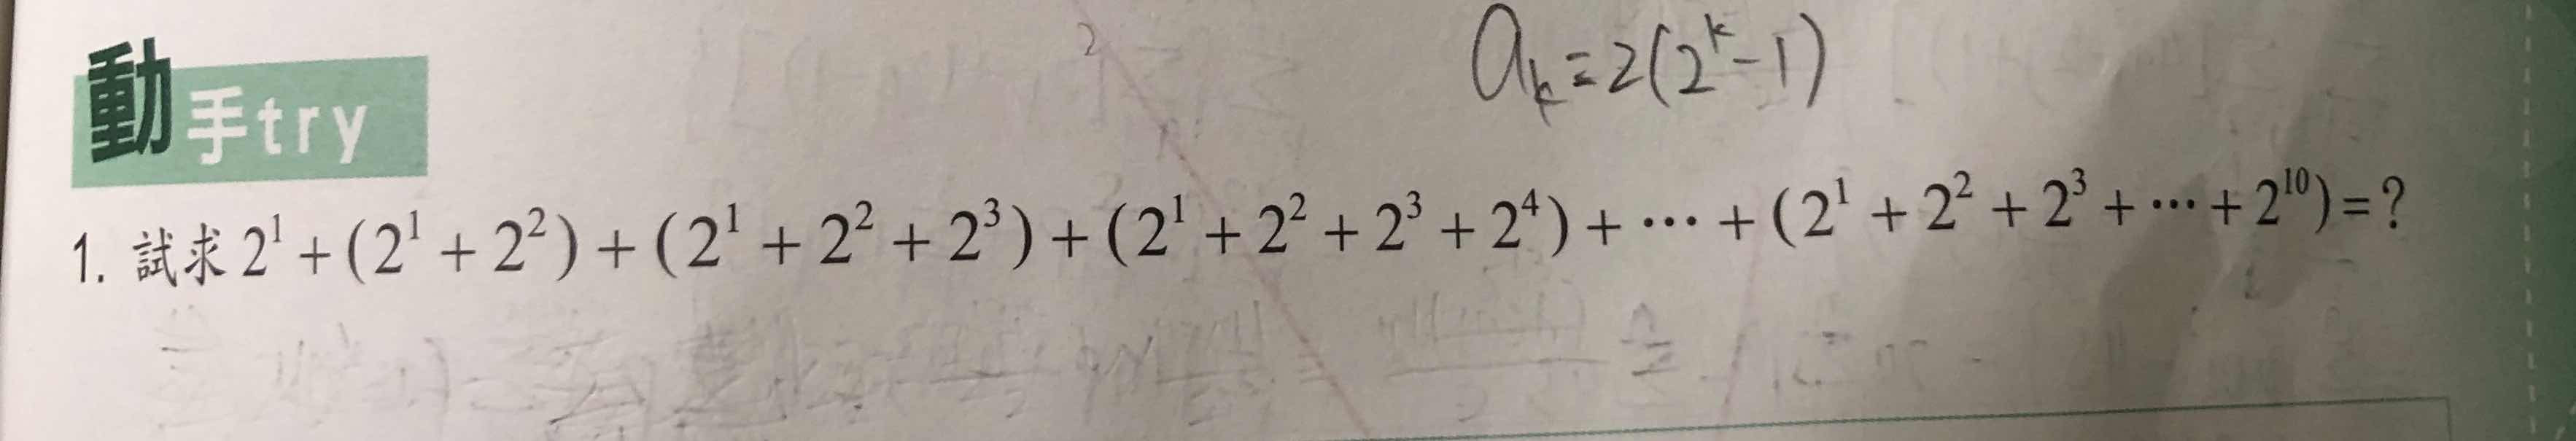 aₖ=2(2ᵏ-1)
動手try
1. 試求 2¹+(2¹+2²)+(2¹+2²+2³)+(2¹+2²+2³+2⁴)+⋯+(2¹+2²+2³+⋯+2¹⁰)=?